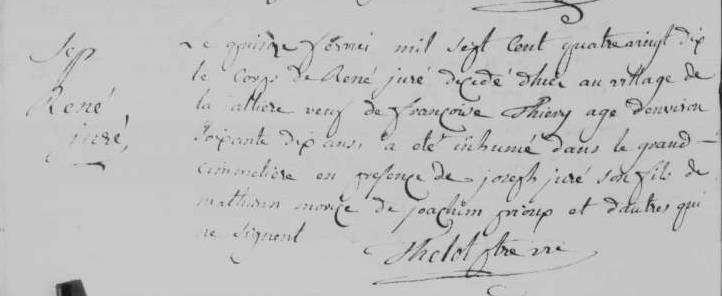 Sep
René
juré
Le quinze fevrier mil sept Cent quatrevingt dix
le Corps de René juré decedé dhier au village de
la attiere veuf de françoise Thiery age denviron
Soixante dix ans, a eté inhumé dans le grand
cimmetière en presence de joseph juré son fils de
mathurin morice de joachim prioux et d'autres qui
ne signent
Thelot ptre vre